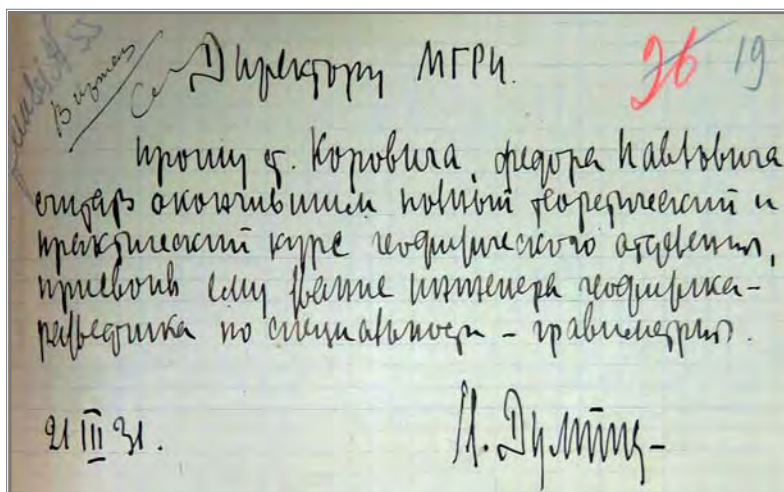 Директору МГРИ.
26 19
Прошу ст. Коровича, Федора Павловича
считать окончившим полный теоретический и
практический курс геофизического отделения,
присвоив ему звание инженера геофизика-
разведчика по специальности - гравиметрия.
21 III 31.